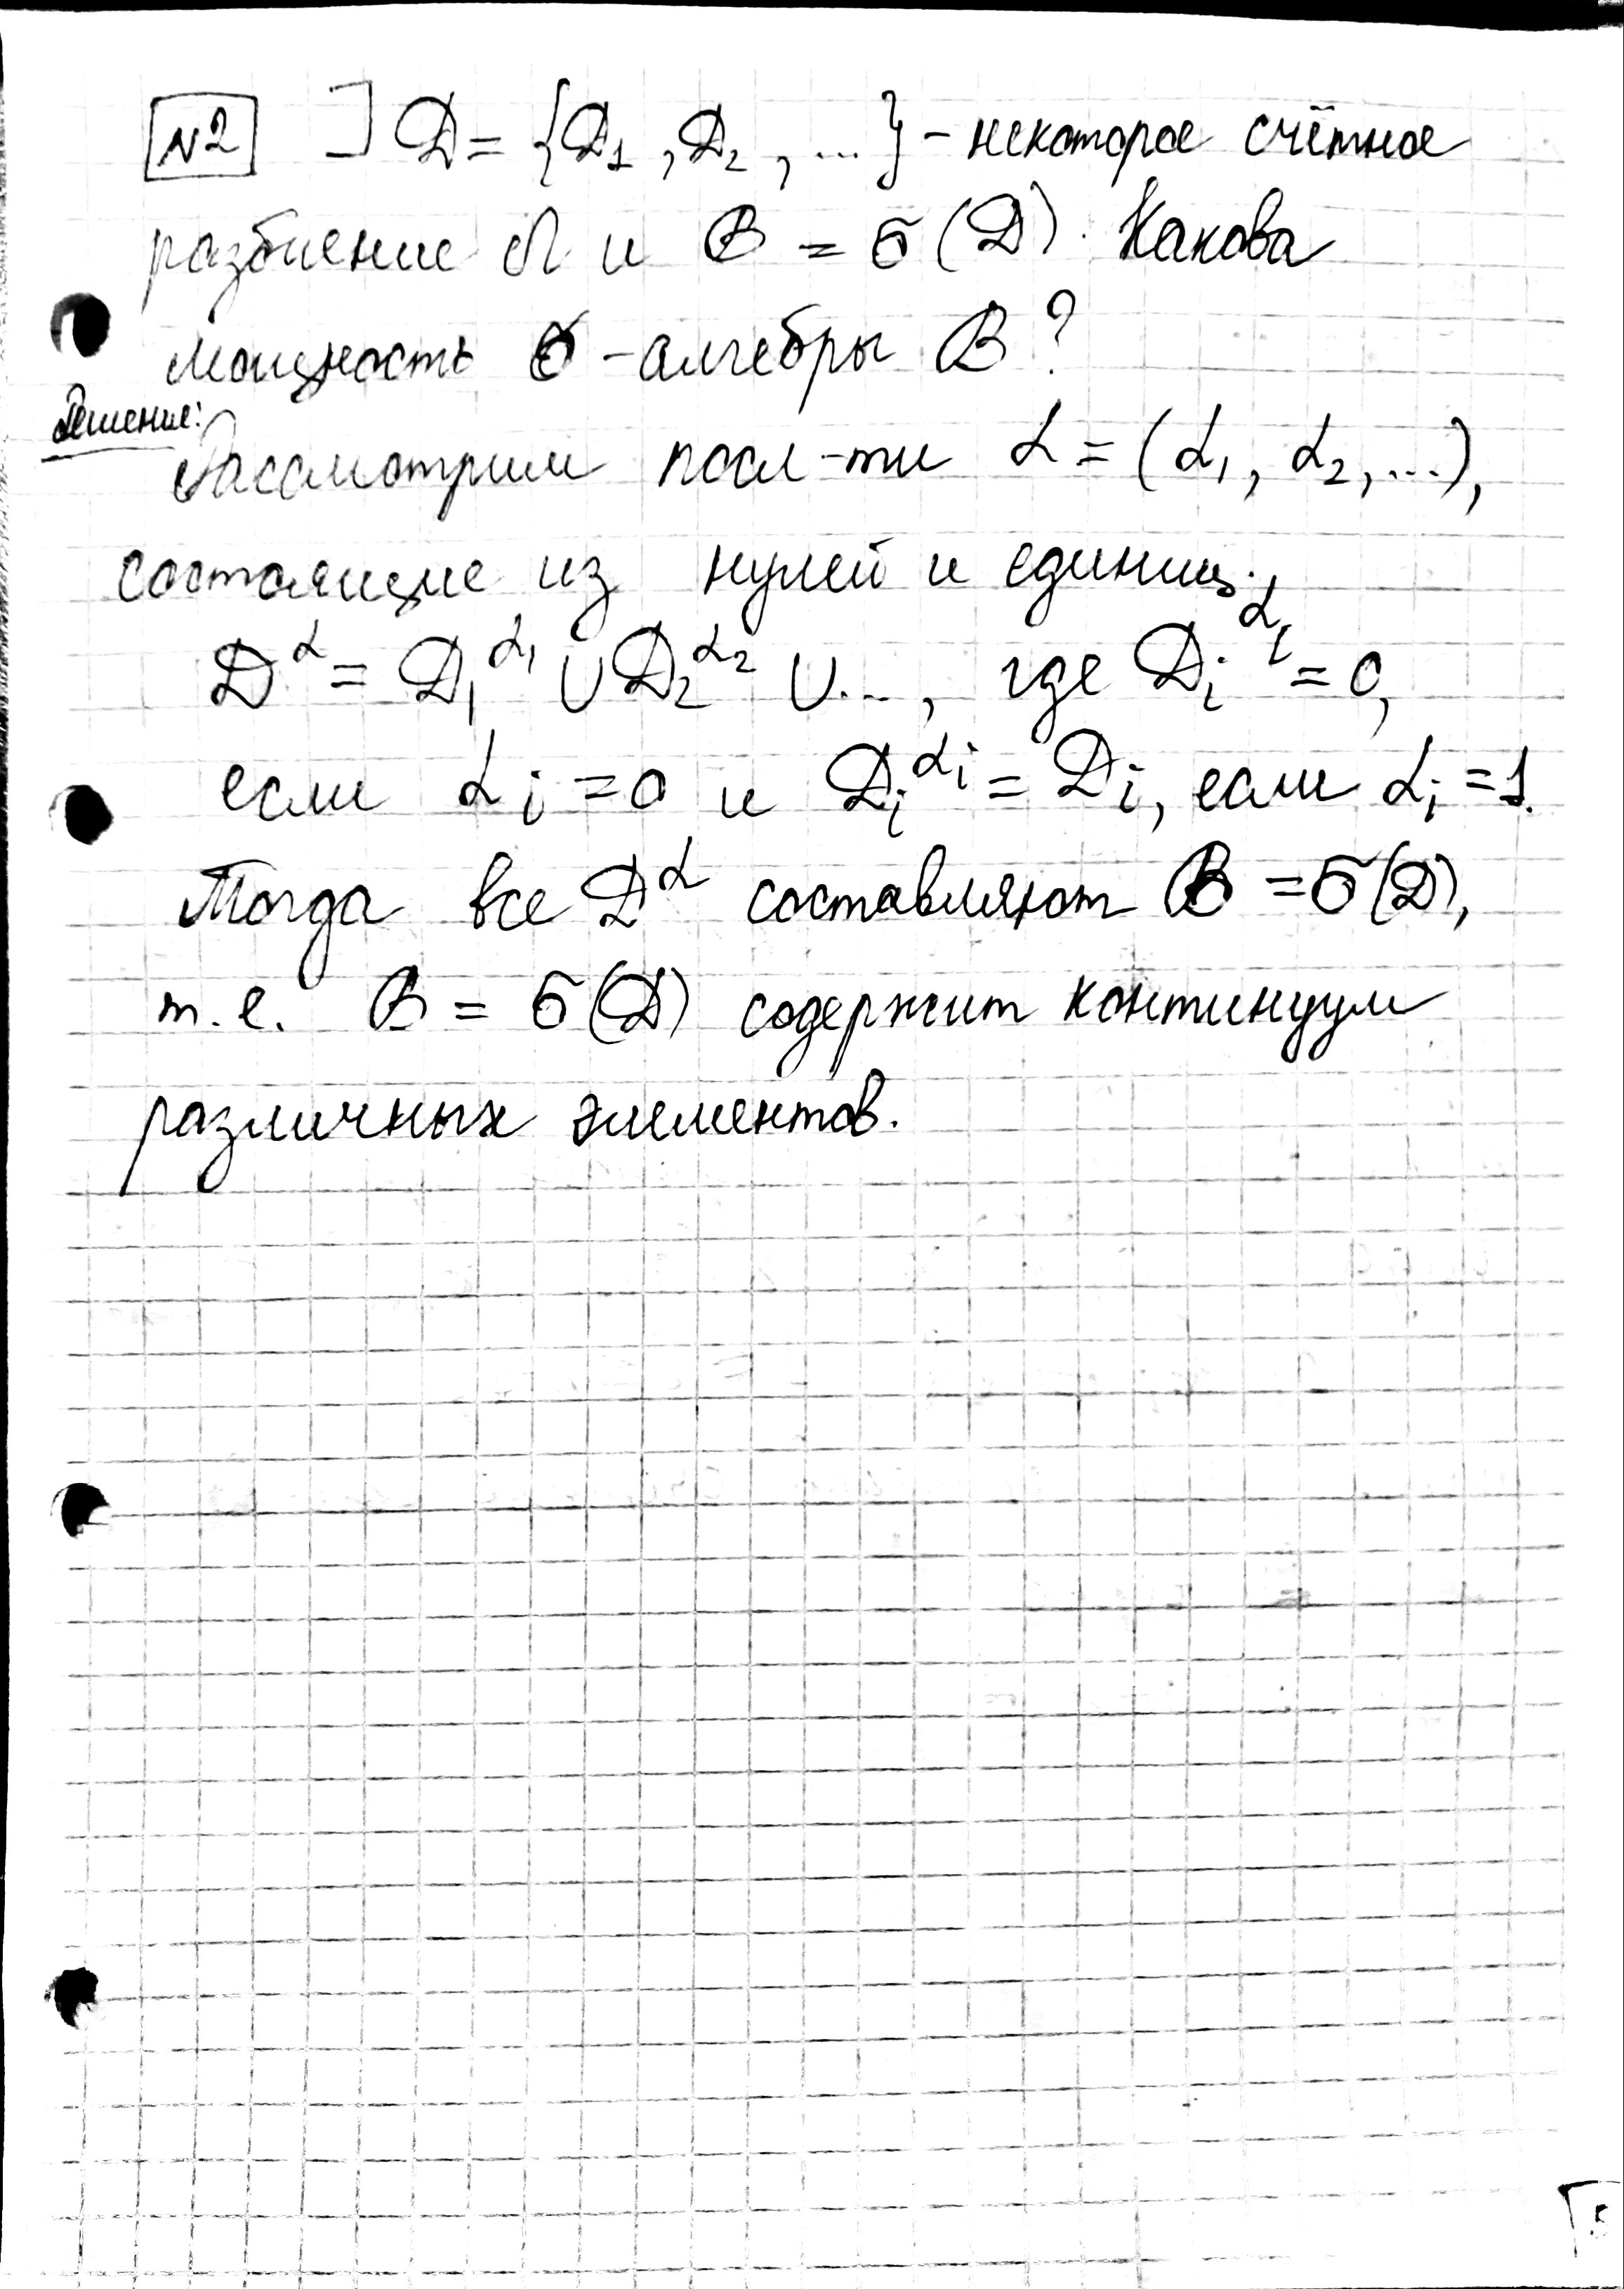 №2 ] D = {D₁, D₂, ...} – некоторое счётное
разбиение Ω и ℬ = σ(D). Какова
мощность σ-алгебры ℬ?
Решение:
Рассмотрим посл-ти α = (α₁, α₂, ...),
состоящие из нулей и единиц.
D^α = D₁^α₁ ∪ D₂^α₂ ∪ ..., где Dᵢ^αᵢ = 0,
если αᵢ = 0 и Dᵢ^αᵢ = Dᵢ, если αᵢ = 1.
Тогда все D^α составляют ℬ = σ(D),
т.е. ℬ = σ(D) содержит континуум
различных элементов.